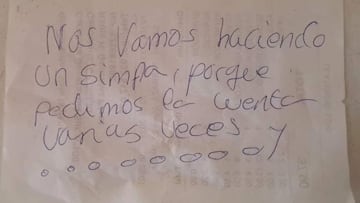 Nos Vamos haciendo
un simpa, porqee
pedimos la cuenta
varias veces y
. . . . . . . . .